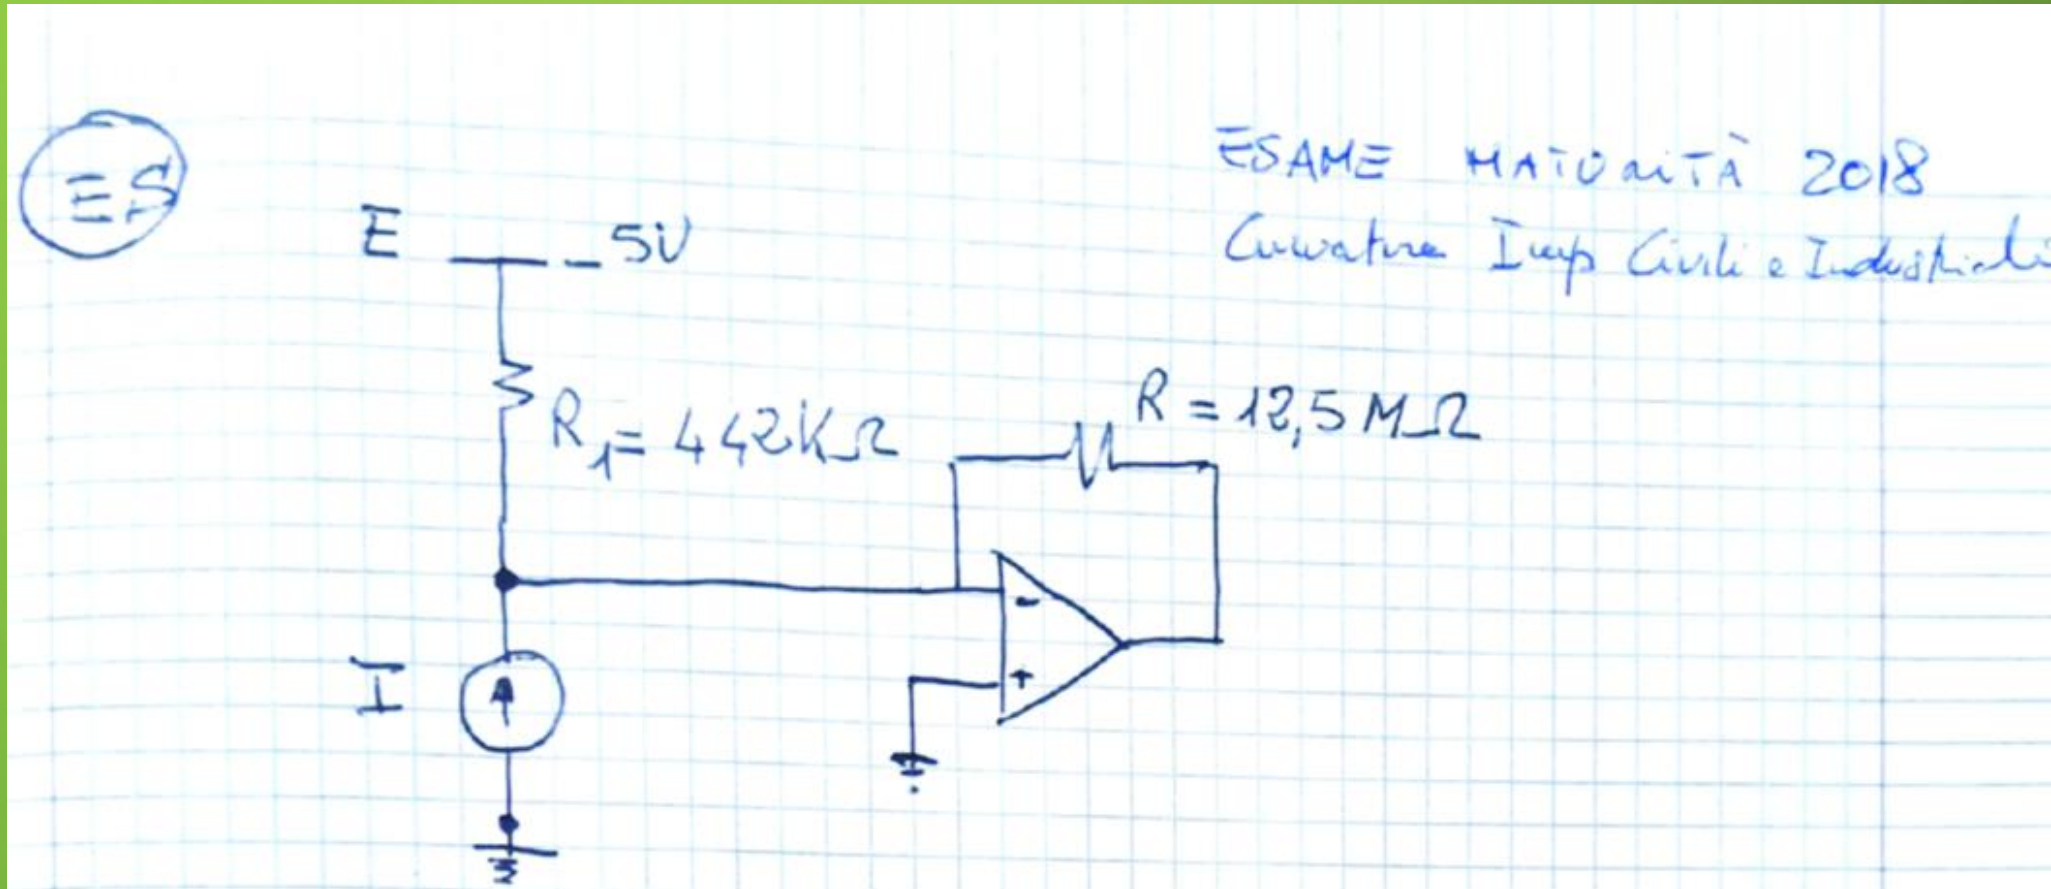 ES
ESAME MATURITÀ 2018
Curvatura Imp Civili e Industriali
E - 5V
R = 12,5 MΩ
R1 = 442 KΩ
-
+
I